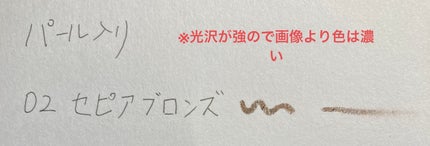 パール入り
※光沢が強ので画像より色は濃
い
02 セピアブロンズ